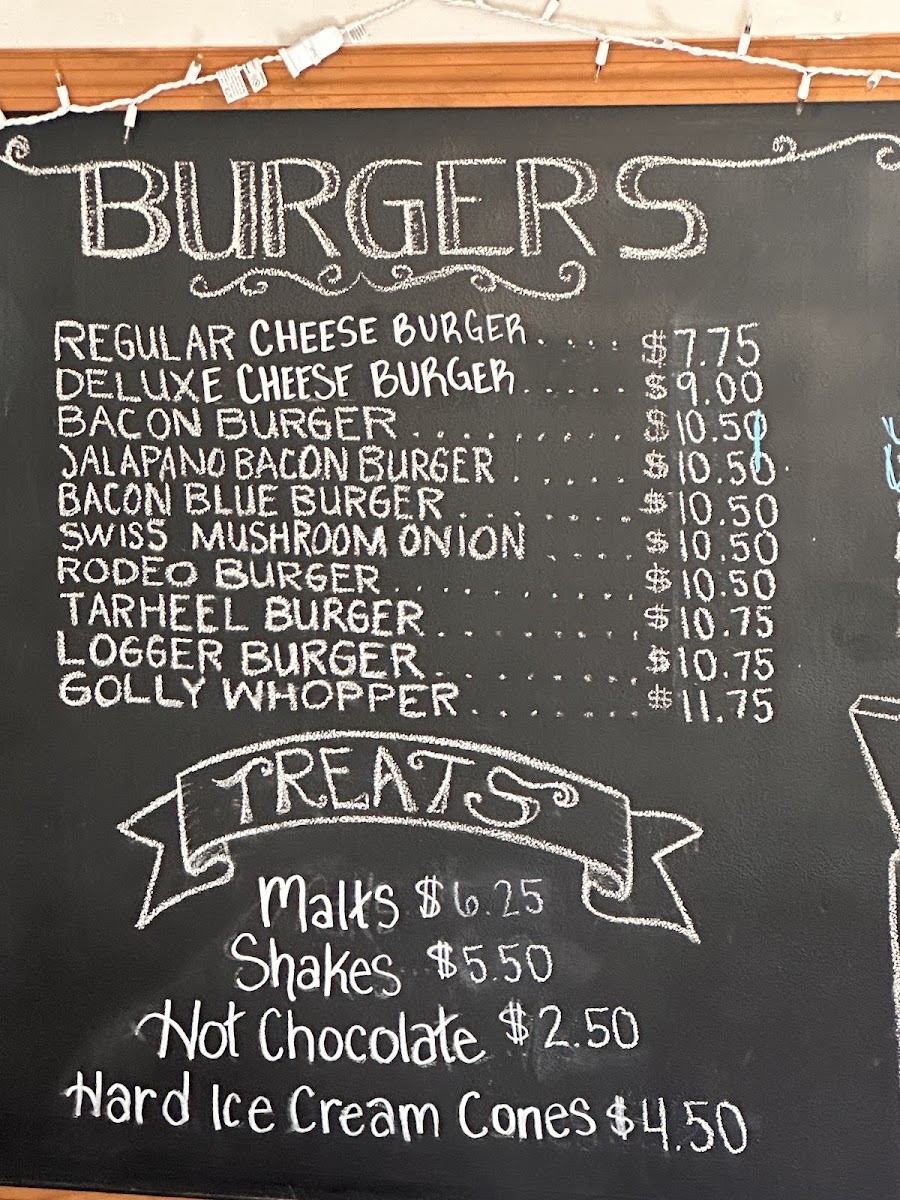 BURGERS
REGULAR CHEESE BURGER.... $7.75
DELUXE CHEESE BURGER..... $9.00
BACON BURGER......... $10.50
JALAPANO BACON BURGER..... $10.50
BACON BLUE BURGER...... $10.50
SWISS MUSHROOM ONION.... $10.50
RODEO BURGER........ $10.50
TARHEEL BURGER....... $10.75
LOGGER BURGER....... $10.75
GOLLY WHOPPER....... $11.75
TREATS
Malts $6.25
Shakes $5.50
Hot Chocolate $2.50
Hard Ice Cream Cones $4.50